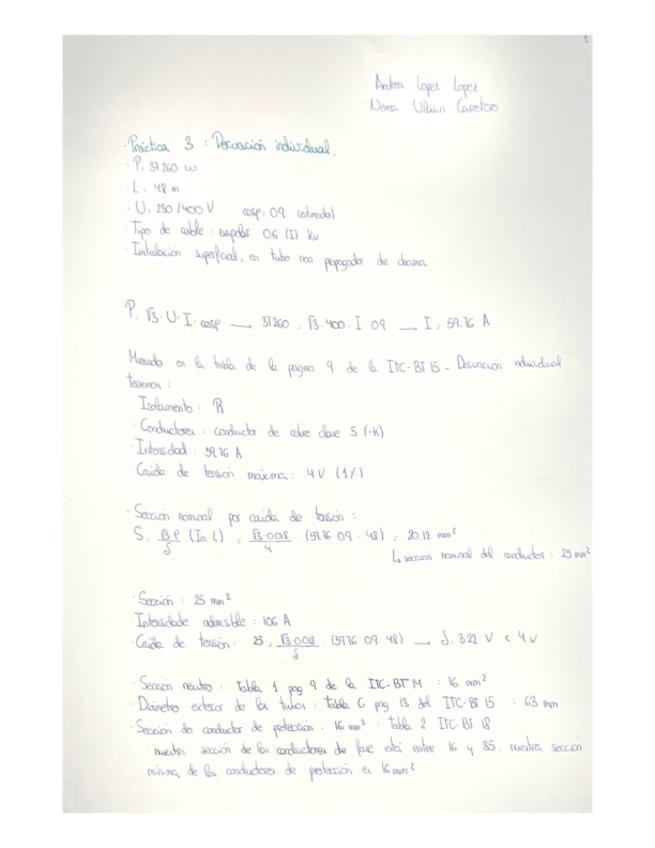 1
Andrea Lopez Lopez
Nerea Carretero
· Práctica 3 : Derivación individual.
· P. 37260 W
· L. 48 m
· U. 230/400 V cosφ: 09 (estimado)
· Tipo de cable: unipolar 06 (1) Kv
· Instalación superficial, en tubo non propagador de chama
P. √3·U·I·cosφ — 37260 . √3.400.I.09 — I. 59.76 A
Mirando en la tabla de la página 9 de la ITC-BT 15 - Derivación individual
tenemos :
Isolamento : R
· Conductores : conductor de cobre clase 5 (-K)
· Intensidad : 59.76 A
· Caída de tensión máxima: 4 V (1%)
· Sección nominal por caída de tensión :
S. √3·ρ/δ (In·L) = √3·0018/4 . (59.76·09·48) = 20.12 mm²
↳ sección nominal del conductor : 25 mm²
· Sección : 25 mm²
· Intensidade admisible : 106 A
· Caída de tensión: 25 = √3·0018/δ . (59.76·09·48) — δ. 3.22 V < 4 V
· Sección neutro : tabla 1 pag 9 de la ITC-BT 14 : 16 mm²
· Diámetro exterior de los tubos : tabla 6 pag 13 del ITC-BT 15 : 63 mm
· Sección do conductor de protección : 16 mm² : tabla 2 ITC-BT 18
· nuestra sección de los conductores de fase está entre 16 y 35, nuestra sección
mínima de los conductores de protección es 16 mm²